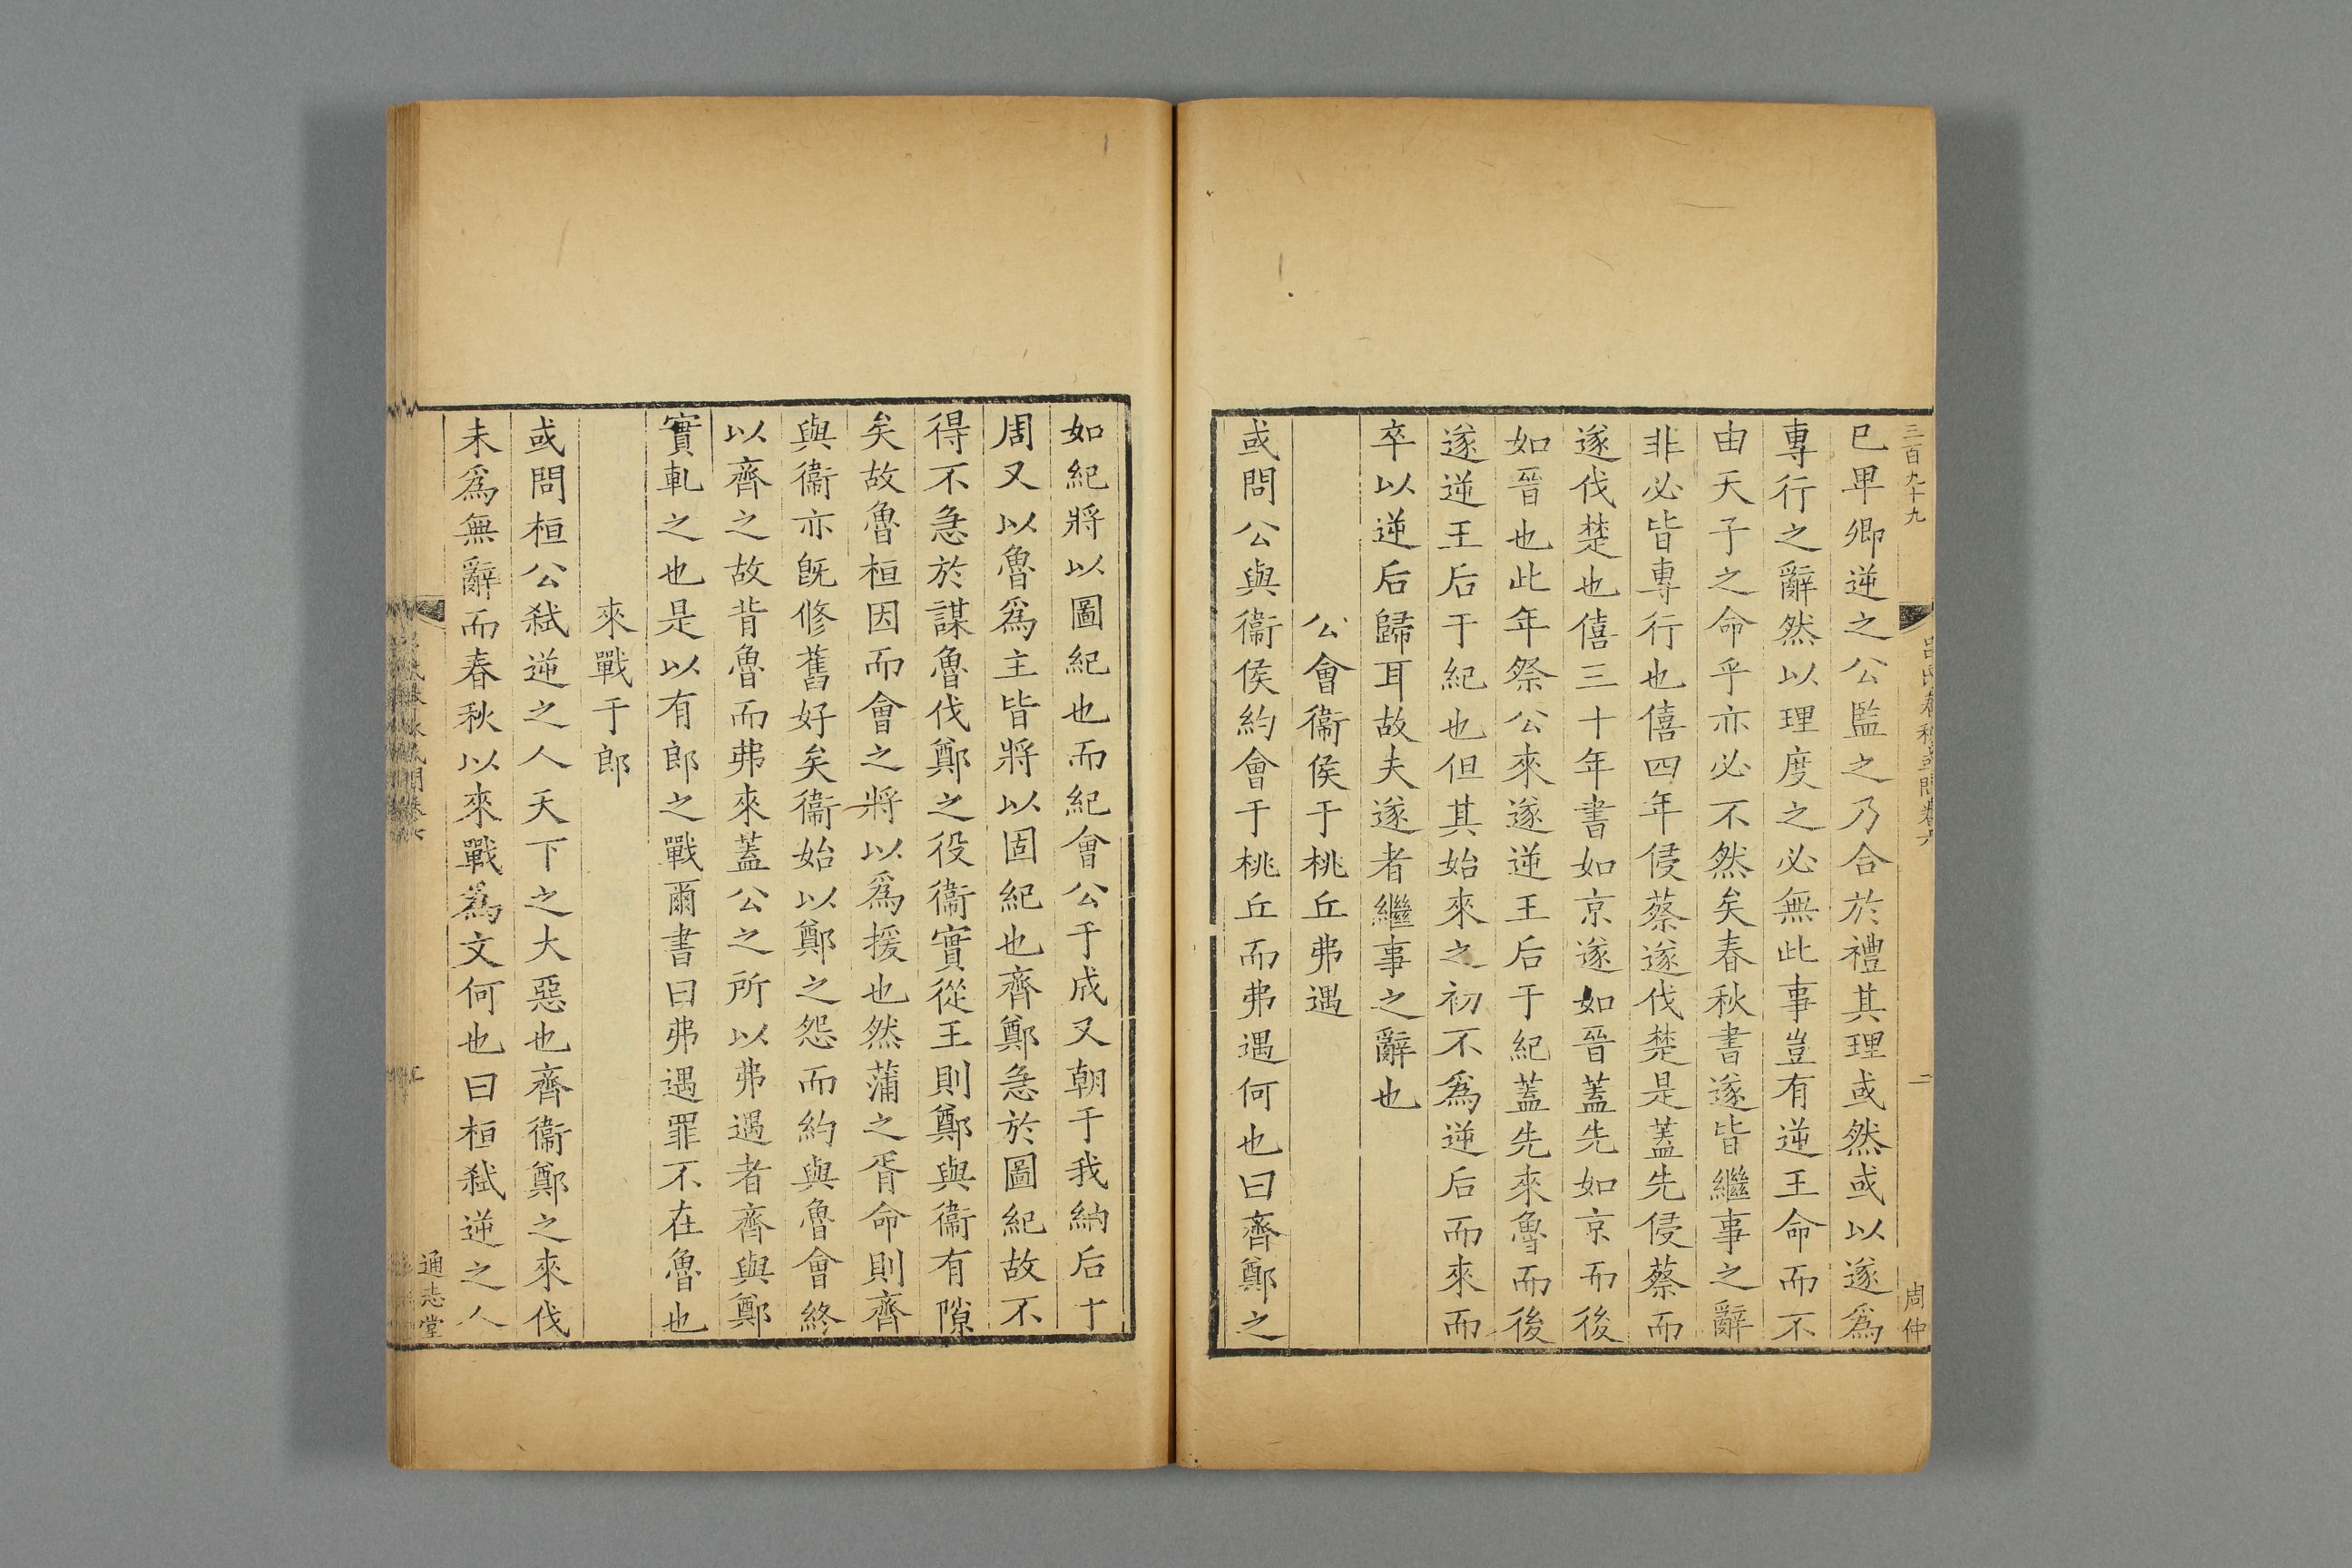 三百九十九
吕氏春秋或問卷六
二
周仲
已卑卿逆之公監之乃合於禮其理或然或以遂爲
專行之辭然以理度之必無此事豈有逆王命而不
由天子之命乎亦必不然矣春秋書遂皆繼事之辭
非必皆專行也僖四年侵蔡遂伐楚是蓋先侵蔡而
遂伐楚也僖三十年書如京遂如晉蓋先如京而後
如晉也此年祭公來遂逆王后于紀蓋先來魯而後
遂逆王后于紀也但其始來之初不爲逆后而來而
卒以逆后歸耳故夫遂者繼事之辭也
公會衞侯于桃丘弗遇
或問公與衞侯約會于桃丘而弗遇何也曰齊鄭之
如紀將以圖紀也而紀會公于成又朝于我納后于
周又以魯爲主皆將以固紀也齊鄭急於圖紀故不
得不急於謀魯伐鄭之役衞實從王則鄭與衞有隙
矣故魯桓因而會之將以爲援也然蒲之胥命則齊
與衞亦旣修舊好矣衞始以鄭之怨而約與魯會終
以齊之故背魯而弗來蓋公之所以弗遇者齊與鄭
實軋之也是以有郎之戰爾書曰弗遇罪不在魯也
來戰于郎
或問桓公弑逆之人天下之大惡也齊衞鄭之來伐
未爲無辭而春秋以來戰爲文何也曰桓弑逆之人
通志堂